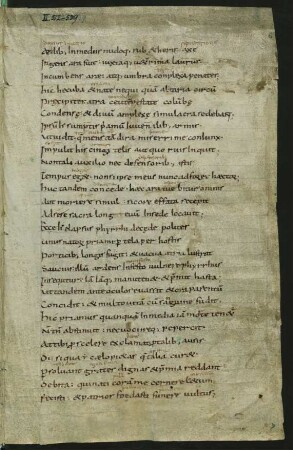 II 512-539
Aedibus in mediis nudoq; sub aetheris axe
Ingens ara fuit iuxtaq; ueterrima laurus
Incumbens arae atq; umbra conplexa penates
Hic hecuba et natae nequiquam altaria circum
Praecipites atra ceu tempestate columbae
Condensae et diuum amplexae simulacra sedebant
Ipsum sumptis priamum iuuenalib; armis
Ut uidit quae mens tam dira miserrime coniunx
Impulit his cingi telis aut quo ruis inquit
Non tali auxilio nec defensorib; istis
Tempus eget non si ipse meus nunc adforet hector
Huc tandem concede haec ara tuebitur omnis
Aut moriere simul sic ore effata recepit
Ad se et sacra longeuum in sede locauit
Ecce autem elapsus pyrrhi de cede polites
Unus natorum priami per tela per hostis
Porticib; longis fugit et uacua atria lustrat
Saucius illum ardens infesto uulnere pyrrhus
Insequitur iam iamq; manu tenet et premit hasta
Ut tandem ante oculos euasit et ora parentum
Concidit et multo uitam cum sanguine fudit
Hic priamus quanquam in media iam morte tenetur
Non tamen abstinuit nec uoci ireq; pepercit
At tibi pro scelere exclamat pro talib; ausis
Di si qua est caelo pietas quae talia curet
Persoluant grates dignas et praemia reddant
Debita qui nati coram me cernere laetum
Fecisti et patrios foedasti funere uultus